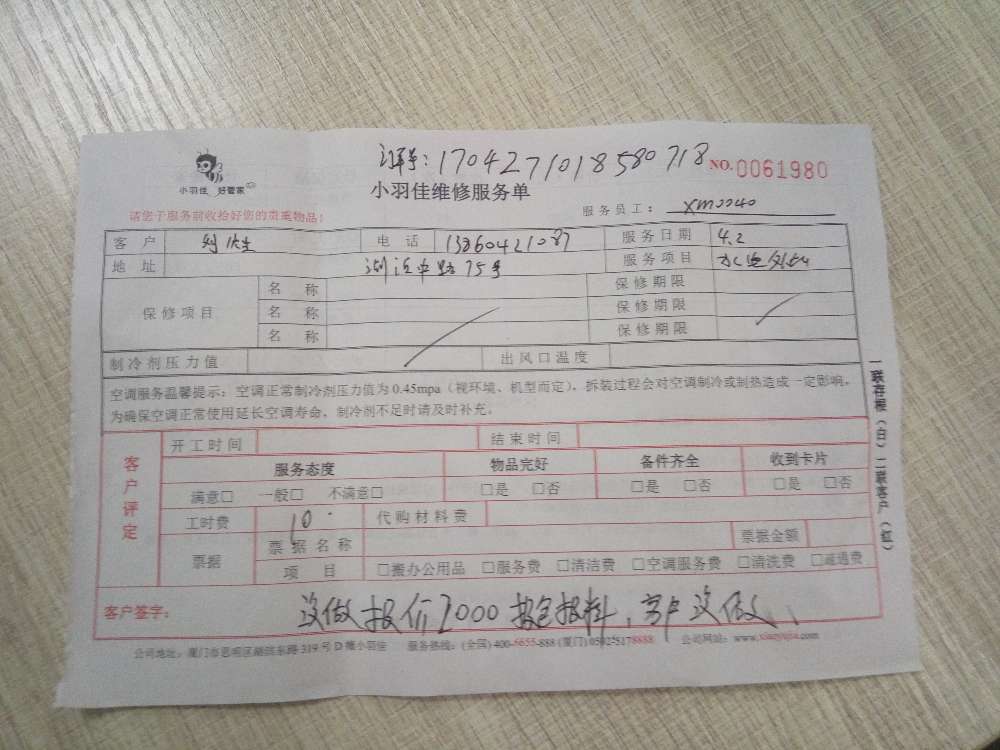 订单号：170427101858071 8 NO.0061980
小羽佳 好管家
小羽佳维修服务单
请您于服务前收拾好您的贵重物品！
服务员工： XM0040
客户 刘先生 电话 13860421087 服务日期 4.2
地址 湖滨中路75号 服务项目 水电
名称 保修期限
保修项目 名称 保修期限
名称 保修期限
制冷剂压力值 出风口温度
空调服务温馨提示：空调正常制冷剂压力值为0.45mpa（视环境、机型而定），拆装过程会对空调制冷或制热造成一定影响，
为确保空调正常使用延长空调寿命，制冷剂不足时请及时补充。
客户评定
开工时间 结束时间
服务态度 物品完好 备件齐全 收到卡片
满意□ 一般□ 不满意□ □是 □否 □是 □否 □是 □否
工时费 10 代购材料费
票据 票据名称 票据金额
项目 □搬办公用品 □服务费 □清洁费 □空调服务费 □清洗费 □疏通费
客户签字： 没做报价2000 报料，客户没做
公司地址：厦门市思明区湖滨东路319号D幢小羽佳 服务热线：(全国)400-6655-888 (厦门)0592-5178888 公司网站：www.xiaoyujia.com
一联存根（白）二联客户（红）